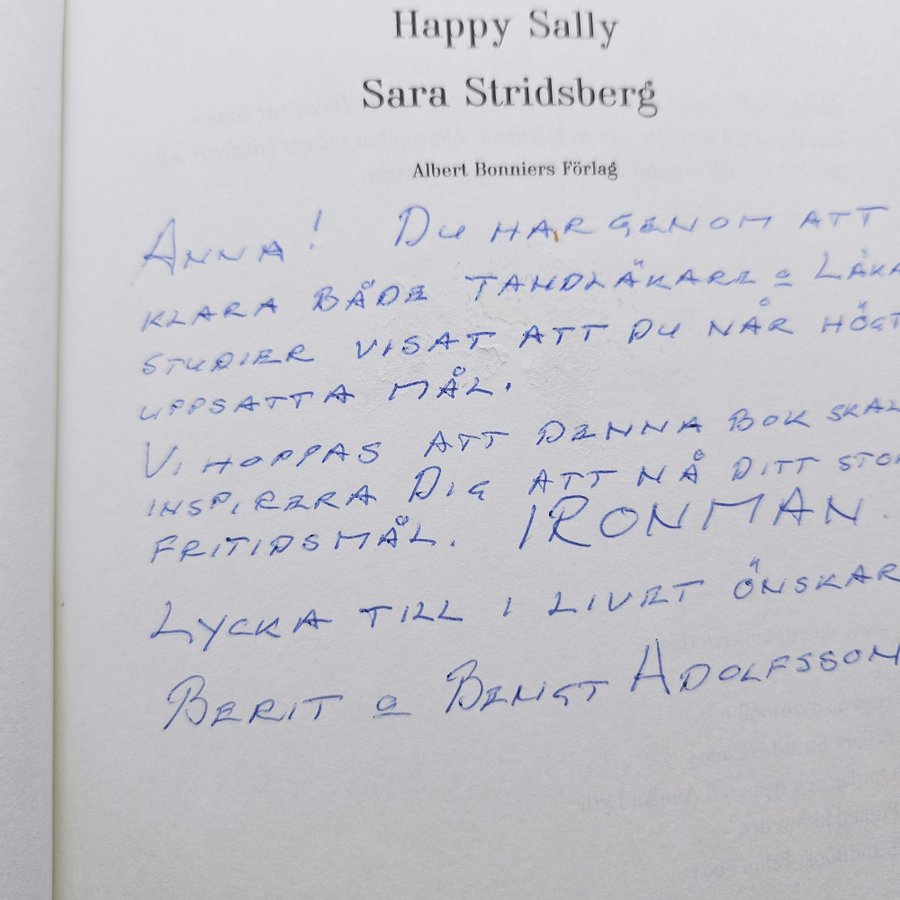 Happy Sally
Sara Stridsberg
Albert Bonniers Förlag
ANNA! DU HAR GENOM ATT
KLARA BÅDE TANDLÄKARE o LÄKA
STUDIER VISAT ATT DU NÅR HÖGT
UPPSATTA MÅL.
VI HOPPAS ATT DENNA BOK SKAL
INSPIRERA DIG ATT NÅ DITT STO
FRITIDSMÅL. IRONMAN.
LYCKA TILL I LIVET ÖNSKAR
BERIT o BENGT ADOLFSSON